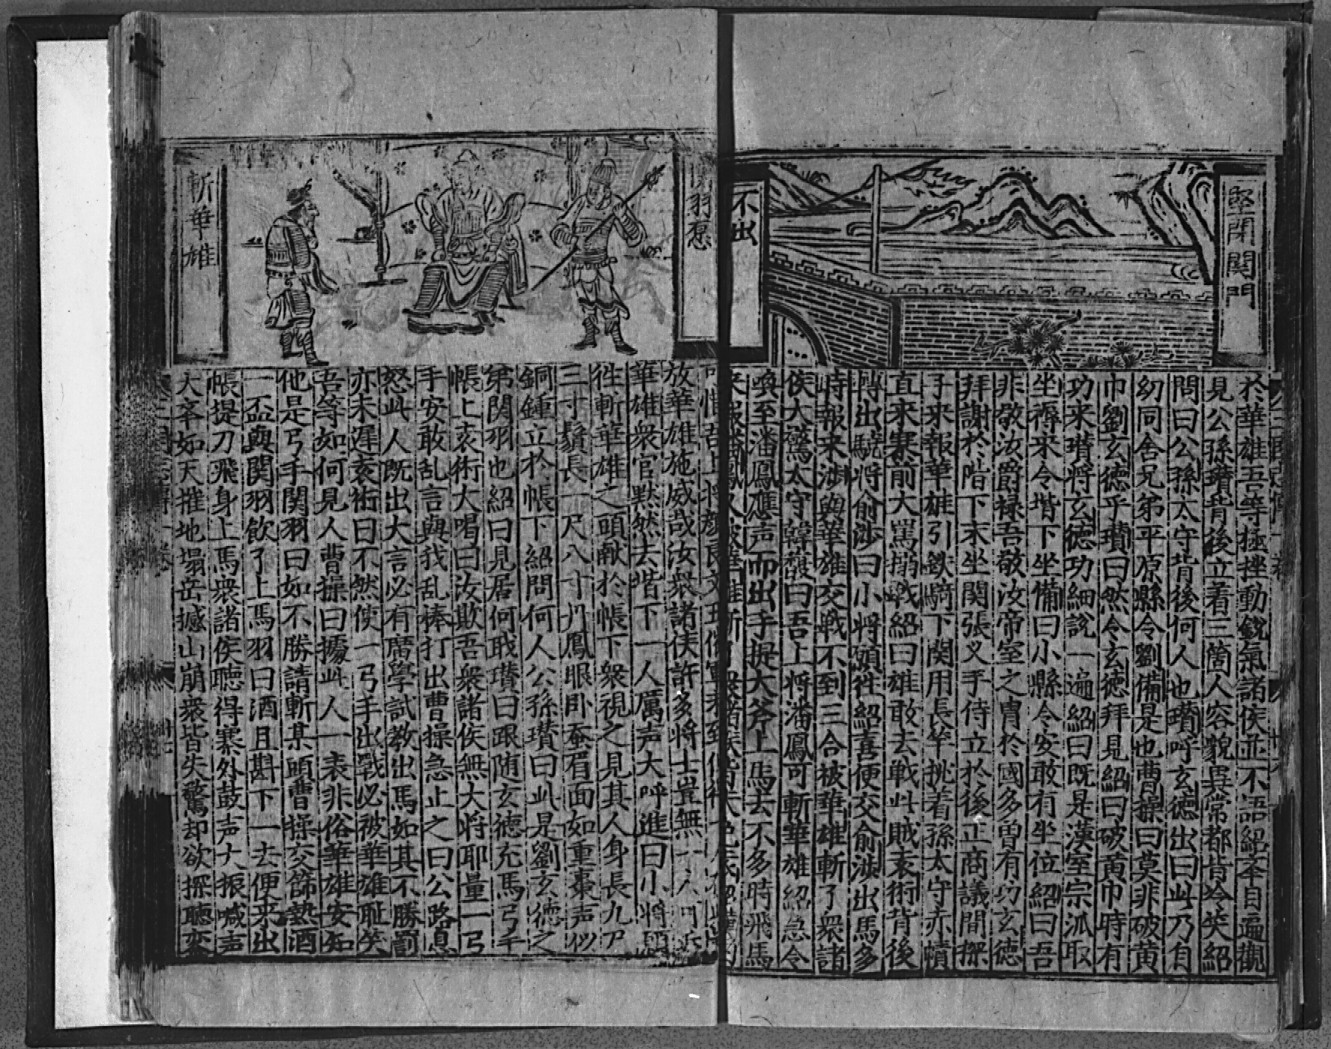 堅閉関門
不出
於華雄吾等極挫動銳氣諸侯並不語紹举目遍觀
見公孫瓚背後立着三箇人容貌異常都肯冷笑紹
問曰公孫太守背後何人也瓚呼玄德出曰此乃自
幼同舍兄弟平原縣令劉備是也曹操曰莫非破黄
巾劉玄德乎瓚曰然令玄德拜見紹曰破黄巾時有
功来瓚将玄德功細説一遍紹曰既是漢室宗派取
坐褥来令堦下坐備曰小縣令安敢有坐位紹曰吾
非敬汝爵禄吾敬汝帝室之胄於國多曽有功玄德
拜謝於階下末坐関張叉手侍立於後正商議間探
子来報華雄引鉄騎下関用長竿挑着孫太守赤幘
直来寨前大罵搦戦紹曰雄敢去戦此賊袁術背後
轉出驍将俞渉曰小将願徃紹喜便交俞渉出馬多
時報来渉與華雄交戦不到三合被華雄斬了衆諸
侯大驚太守韓馥曰吾上将潘鳳可斬華雄紹急令
喚至潘鳳應声而出手提大斧上馬去不多時飛馬
羽惹
斬華雄
放華雄施威哉汝衆諸侯許多将士豈無一人
華雄衆官黙然去堦下一人厲声大呼進曰小将
徃斬華雄之頭献於帳下衆視之見其人身長九尺
三寸鬚長一尺八寸丹鳳眼卧蚕眉面如重棗声似
銅鍾立於帳下紹問何人公孫瓚曰此是劉玄德之
第関羽也紹曰見居何戢瓚曰跟随玄德充馬弓手
帳上袁術大喝曰汝欺吾衆諸侯無大将耶量一弓
手安敢乱言與我乱棒打出曹操急止之曰公路息
怒此人既出大言必有廣學試教出馬如其不勝罰
亦未遲袁術曰不然使一弓手出戰必被華雄耻笑
吾等如何見人曹操曰據此人一表非俗華雄安知
他是弓手関羽曰如不勝請斬某頭曹操交篩熱酒
一盃與関羽飲了上馬羽曰酒且斟下一去便来出
帳提刀飛身上馬衆諸侯聴得寨外鼓声大振喊声
大举如天摧地塌岳撼山崩衆皆失驚却欲探聴